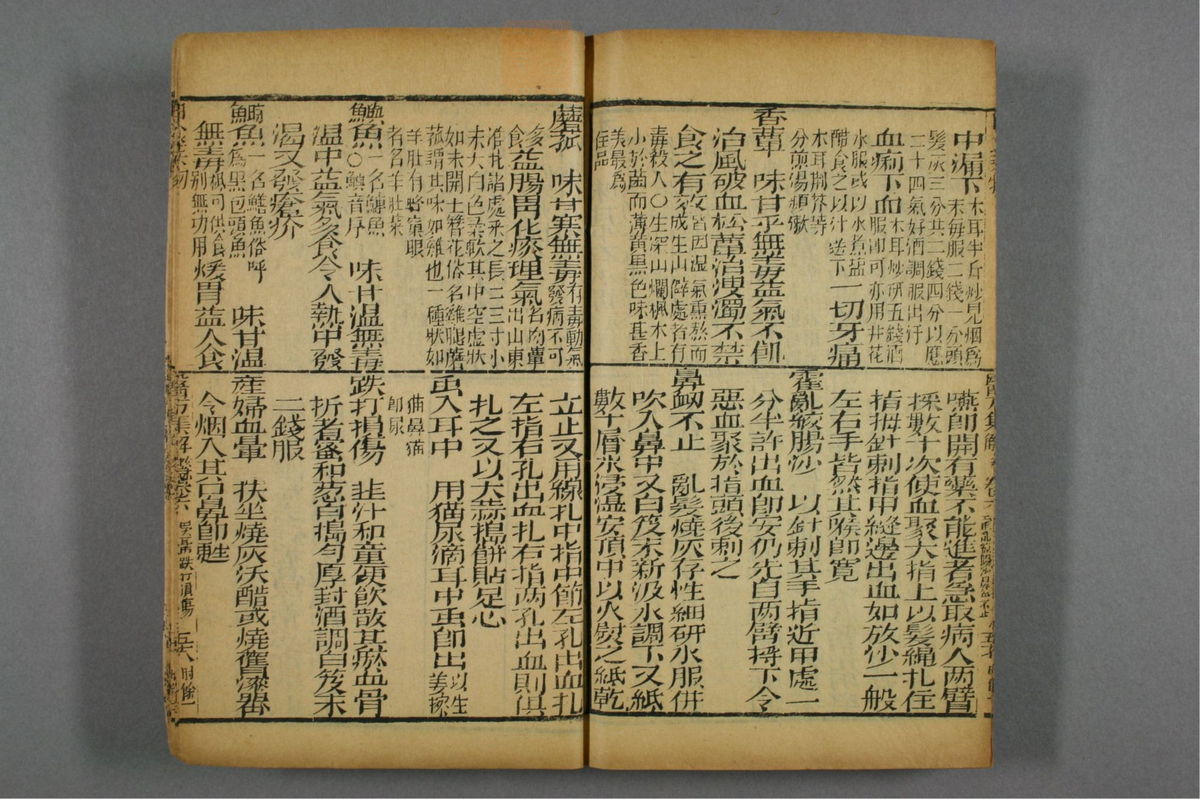 中漏下 木耳半斤炒見烟為
髮灰三分共二錢四分以應
二十四氣好酒調服出汗
血痢下血 木耳炒研五錢酒
服即可亦用井花
水服或以水煮鹽
醋食之以汁送下 一切牙痛
木耳荆芥等
分煎湯頻漱
香蕈 味甘平無毒益氣不飢
治風破血松蕈治溲濁不禁
食之有效
皆因湿氣熏蒸而
成生山僻處者有
毒殺人〇生深山爛楓木上
小於菌而薄黃黑色味甚香
美最為
佳品
嚥即開有藥不能進者急取病人两臂
捋數十次使血聚大指上以髮繩扎住
指拇針刺指甲縫邊出血如放痧一般
左右手皆然其喉即寬
霍亂絞腸沙 以針刺其手指近甲處一
分半許出血即安仍先自两臂捋下令
惡血聚於指頭後刺之
鼻衂不止 亂髮燒灰存性細研水服併
吹入鼻中又白芨末新汲水調下又紙
數十層水浸溼安頂中以火熨之紙乾
蘑菰 味甘寒無毒 有毒動氣
發病不可
多食 益腸胃化痰理氣 出山東
淮北諸處采之長二三寸小
末大白色柔軟其中空虛狀
如未開玉簪花俗名雞腿蘑
菰謂其味如雞也一種狀如
羊肚有蜂窠眼
者名羊肚菜
鱮魚 一名鰱魚
〇鱮音序 味甘温無毒
温中益氣多食令人熱中發
渴又發瘡疥
鱅魚 一名鱃魚俗呼
為黑包頭魚 味甘温
無毒 別無功用 煖胃益人食
立止又用線扎中指中節左孔出血扎
左指右孔出血扎右指两孔出血則俱
扎之又以大蒜搗餅貼足心
虫入耳中 用猫尿滴耳中虫即出 以生
姜擦
猫鼻猫
即尿
跌打損傷 韭汁和童便飲散其瘀血骨
折者 和葱白搗勻厚封酒調白芨末
二錢服
產婦血暈 扶坐燒灰沃醋或燒舊漆器
令烟入其口鼻即甦